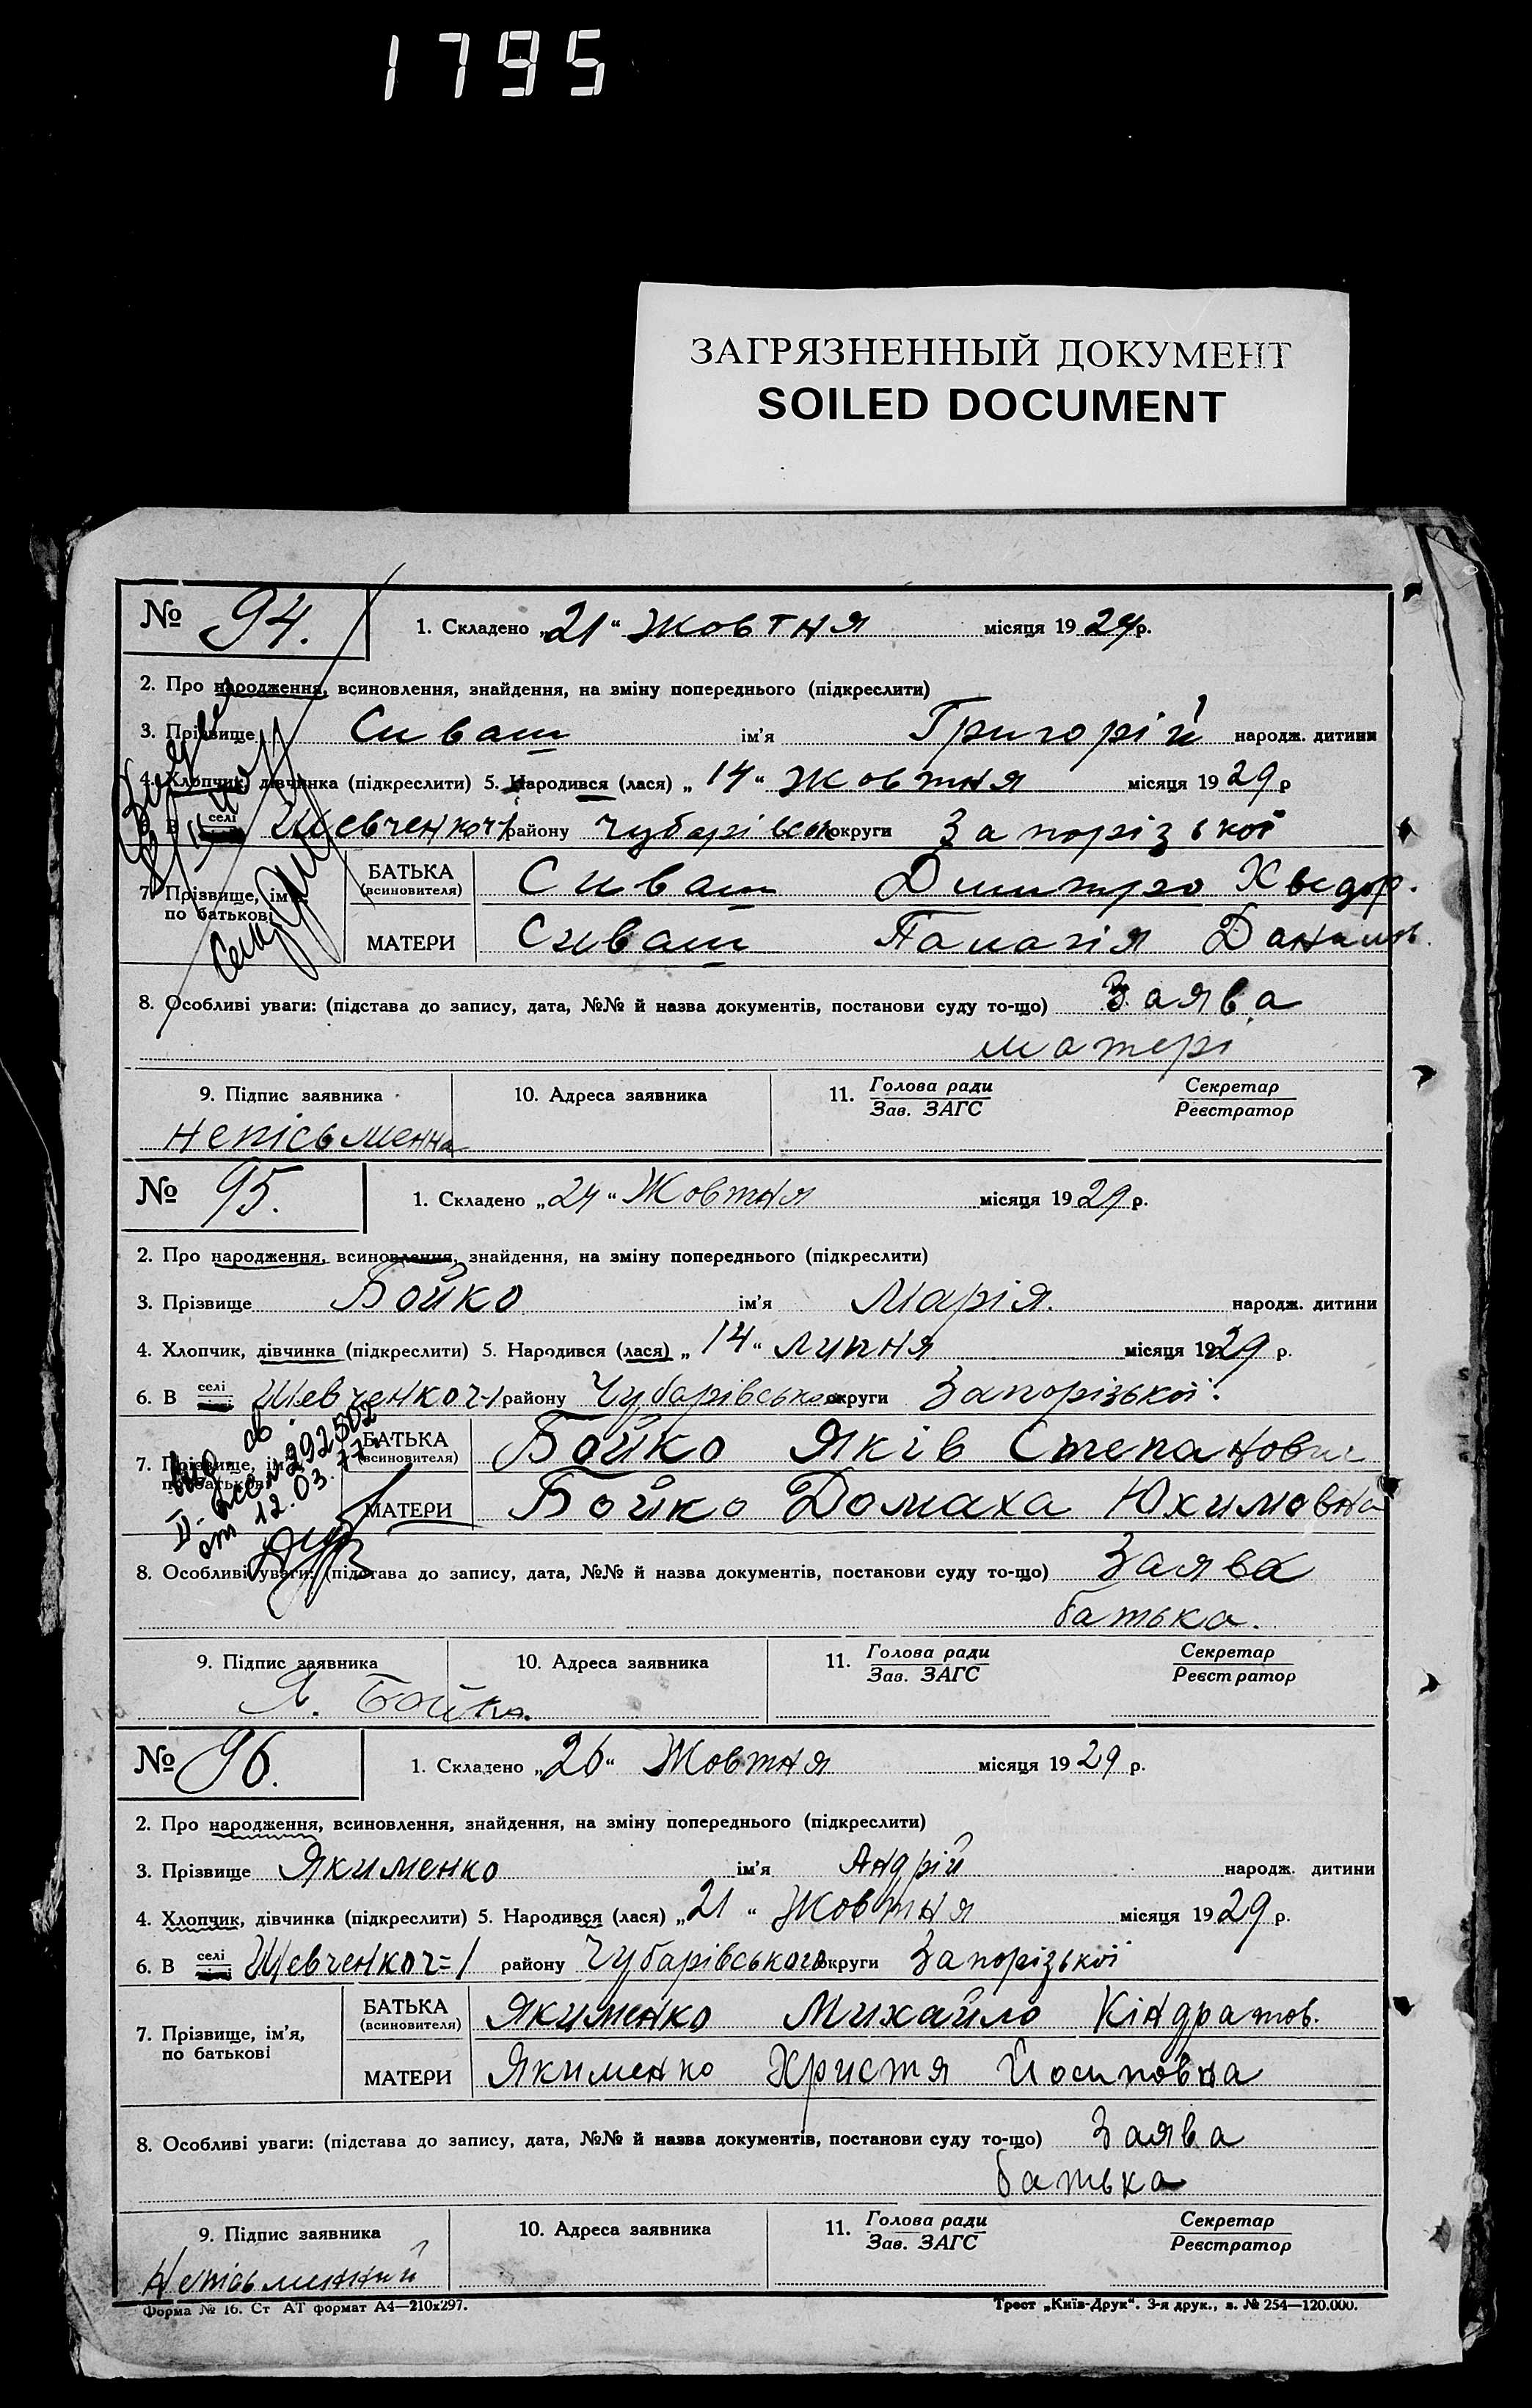 1795
ЗАГРЯЗНЕННЫЙ ДОКУМЕНТ
SOILED DOCUMENT
№ 94. 1. Складено „21“ Жовтня місяця 1929 р.
2. Про народження, всиновлення, знайдення, на зміну попереднього (підкреслити)
3. Прізвище Сиваш ім'я Григорій народж. дитини
4. Хлопчик, дівчинка (підкреслити) 5. Народився (лася) „14“ жовтня місяця 1929 р
В селі Шевченког/ району Чубарівськ округи Запорізької
7. Прізвище, ім'я по батькові БАТЬКА (всиновителя) Сиваш Дмитро Хведор.
МАТЕРИ Сиваш Палагія Данилов.
8. Особливі уваги: (підстава до запису, дата, №№ й назва документів, постанови суду то-що) Заява
матері
9. Підпис заявника 10. Адреса заявника 11. Голова ради Секретар
Зав. ЗАГС Реєстратор
непісьменна
№ 95. 1. Складено „24“ Жовтня місяця 1929 р.
2. Про народження, всиновлення, знайдення, на зміну попереднього (підкреслити)
3. Прізвище Бойко ім'я Марія. народж. дитини
4. Хлопчик, дівчинка (підкреслити) 5. Народився (лася) „14“ липня місяця 1929 р.
6. В селі Шевченког-/ району Чубарівського округи Запорізької.
7. Прізвище, ім'я по батькові БАТЬКА (всиновителя) Бойко Яків Степанович
МАТЕРИ Бойко Домаха Юхимовна
292502
от 12.03.77
8. Особливі уваги: (підстава до запису, дата, №№ й назва документів, постанови суду то-що) Заява
батька.
9. Підпис заявника 10. Адреса заявника 11. Голова ради Секретар
Зав. ЗАГС Реєстратор
Я. Бойко.
№ 96. 1. Складено „26“ Жовтня місяця 1929 р.
2. Про народження, всиновлення, знайдення, на зміну попереднього (підкреслити)
3. Прізвище Якименко ім'я Андрій народж. дитини
4. Хлопчик, дівчинка (підкреслити) 5. Народився (лася) „21“ Жовтня місяця 1929 р.
6. В селі Шевченког=/ району Чубарівського округи Запорізької
7. Прізвище, ім'я, по батькові БАТЬКА (всиновителя) Якименко Михайло Кіндратов.
МАТЕРИ Якименко Христя Йосиповна
8. Особливі уваги: (підстава до запису, дата, №№ й назва документів, постанови суду то-що) Заява
батька
9. Підпис заявника 10. Адреса заявника 11. Голова ради Секретар
Зав. ЗАГС Реєстратор
Непісьменний
Форма № 16. Ст АТ формат А4—210х297. Трест „Київ-Друк“. 3-я друк., з. № 254—120.000.